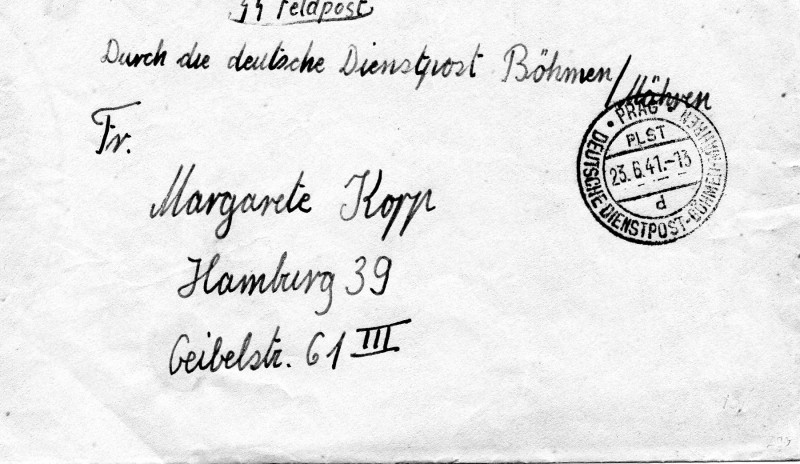 SS Feldpost
Durch die deutsche Dienstpost Böhmen/Mähren
Fr.
Margarete Kopp
Hamburg 39
Geibelstr. 61 III
PRAG
PLST
23.6.41.-13
d
DEUTSCHE DIENSTPOST-BÖHMEN-MÄHREN